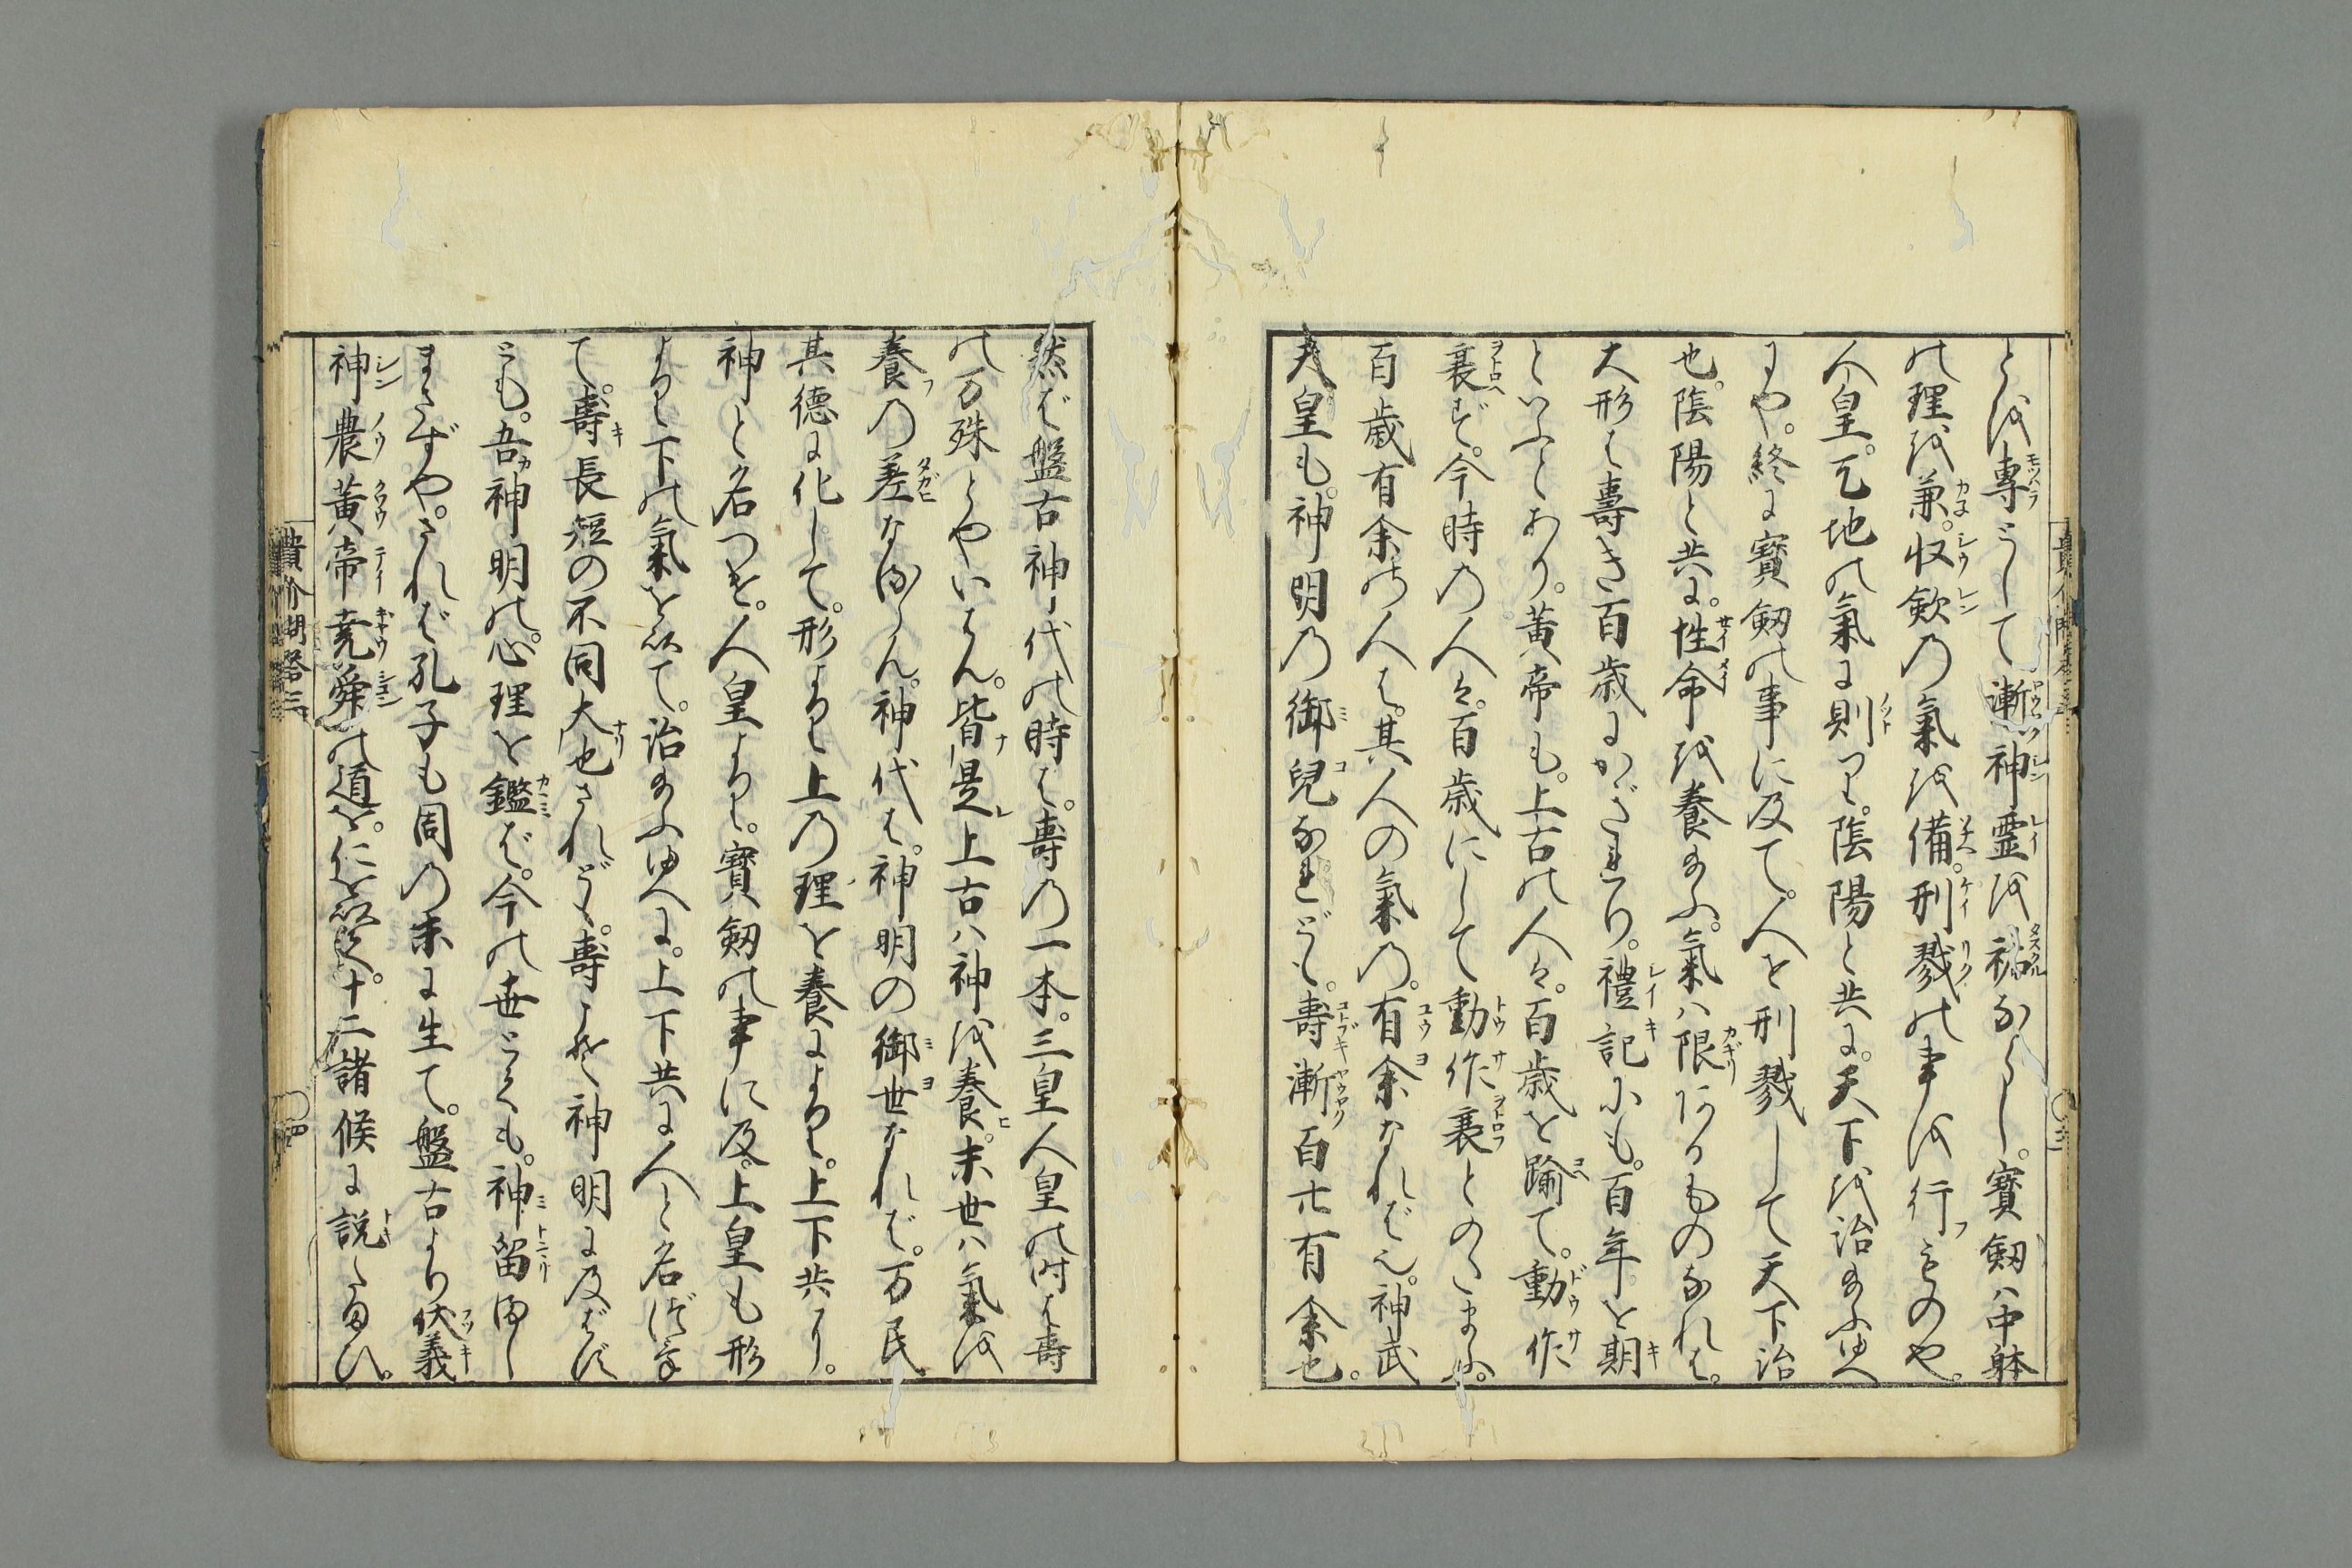 とは専らにして漸神霊は祐ならし。寶剱ハ中躰
の理は兼。収歛乃氣は備。刑戮の事は行ものや。
人皇。天地の氣に則り。陰陽と共に。天下は治給ふゆへ
にや。終に寶剱の事に及て。人を刑戮して天下治
也。陰陽と共に。性命は養給ふ。氣ハ限あるものなれは。
大形は壽き百歳にかぎれり。禮記にも。百年を期
といふとあり。黄帝も。上古の人は。百歳を踰て。動作
衰ず。今時乃人は。百歳にして動作衰とのたまふ。
百歳有余の人は。其人の氣乃。有余なればや。神武
天皇も。神明乃御兒なれども。壽漸百廿有余也。
然ば盤古神代の時は。壽乃一本。三皇人皇の時は壽
の万殊とやいはん。皆是上古ハ神は養。末世ハ氣は
養乃差なるらん。神代は。神明の御世なれば。万民
其徳に化して。形より上乃理を養により。上下共に。
神と名つく。人皇より。寶剱の事に及。上皇も形
より下の氣を以て。治給ふゆへに。上下共に人と名
て。壽長短の不同大也されども。壽こそ神明に及ばず
とも。吾神明の。心理を鑑ば。今の世とても。神留まし
まさずや。されば孔子も周乃末に生て。盤古より伏義
神農黄帝堯舜の道を。十二諸候に説たまひ。
貴介問答三